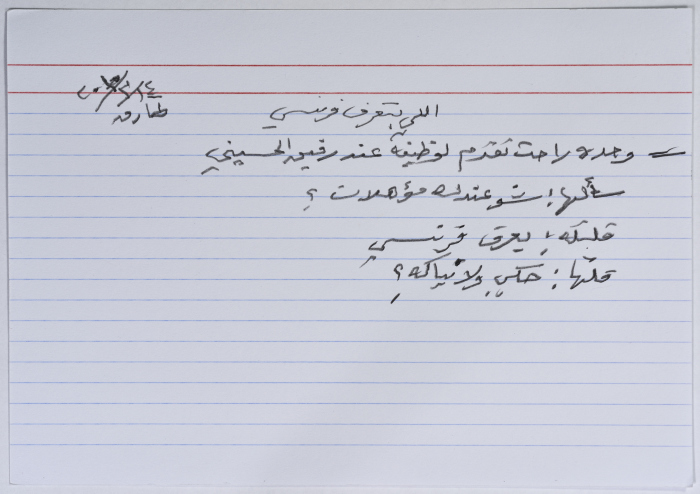 ٢٠١٠/٢/١٤
طارق
اللي بتعرف فرنسي
وحده راحت تقدّم لوظيفة عند رفيق الحسيني
سألها: شو عندك مؤهلات؟
قلتله: بعرف فرنسي
قلّها: حكي ولا نياكه؟